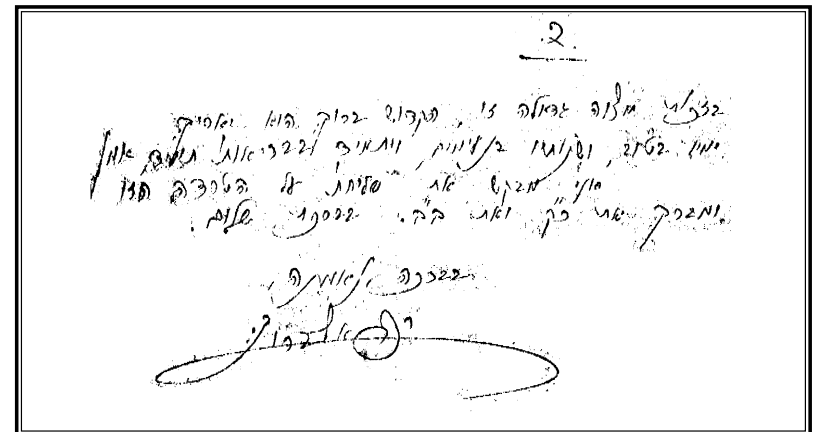 .2.
בזכות מצוה גדולה זו, הקדוש ברוך הוא יאריך
ימיו בטוב, ושנותיו בנעימים, ויתמיד לבריאותו תמיד, אמן
מבקש את סליחת על הטרדה הזו
ומברך את כ"ק ואת ב"ב. בברכת שלום.
בברכה נאמנה,